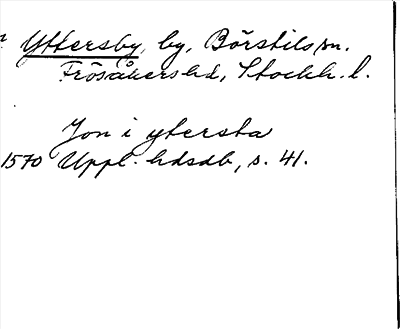 Yttersby, by, Börstils sn.
Frösåkers hd, Stockh. l.
Jon i ytersta
1570 Uppl. hdsdb, s. 41.